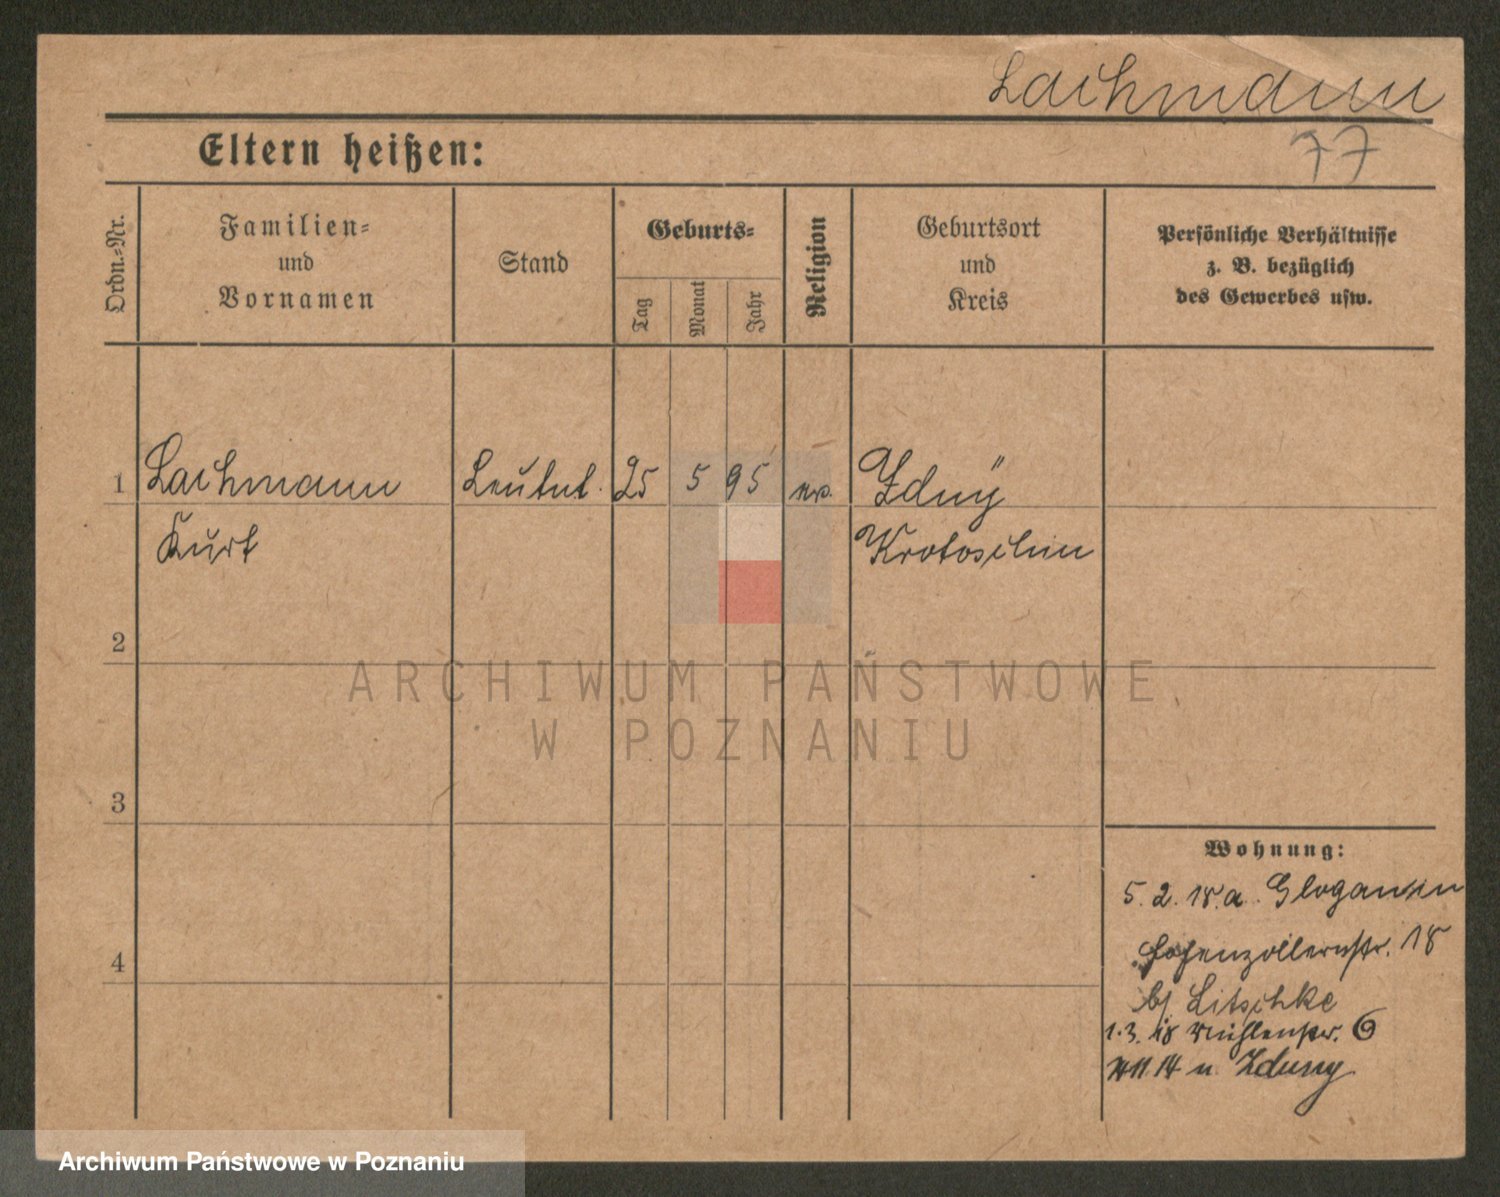 Lachmann
77
Eltern heißen:
Ordn.=Nr.
Familien=
und
Vornamen
Stand
Geburts=
Tag
Monat
Jahr
Religion
Geburtsort
und
Kreis
Persönliche Verhältnisse
z. B. bezüglich
des Gewerbes usw.
1 Lachmann Leutnt. 25 5 95 ev. Zduny
Kurt Krotoschin
2
3
4
ARCHIWUM PAŃSTWOWE
W POZNANIU
Wohnung:
5. 2. 18. a.
Hohenzollernstr. 18
b/ Litschke
1. 3. 18 Mühlenstr. 6
n. Zduny
Archiwum Państwowe w Poznaniu